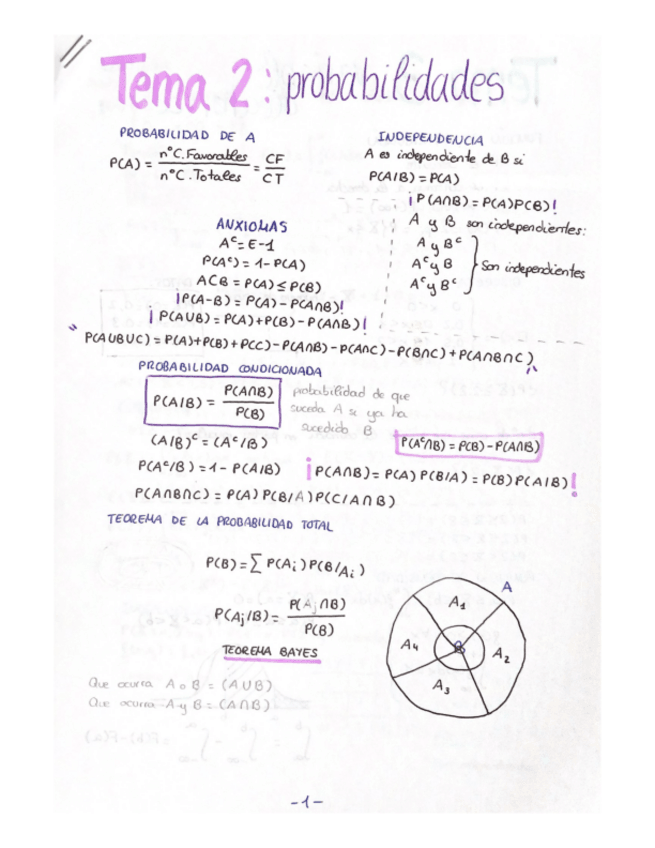 Tema 2: probabilidades
PROBABILIDAD DE A
P(A) = nº C. Favorables / nº C. Totales = CF / CT
INDEPENDENCIA
A es independiente de B si
P(A/B) = P(A)
¡P(A∩B) = P(A)P(B)!
A y B son independientes:
A y Bᶜ
Aᶜ y B
Aᶜ y Bᶜ
Son independientes
ANXIOMAS
Aᶜ = E-1
P(Aᶜ) = 1 - P(A)
ACB = P(A) ≤ P(B)
¡P(A-B) = P(A) - P(A∩B)!
¡P(A∪B) = P(A)+P(B) - P(A∩B)!
P(A∪B∪C) = P(A)+P(B)+P(C) - P(A∩B) - P(A∩C) - P(B∩C) + P(A∩B∩C)
PROBABILIDAD CONDICIONADA
P(A/B) = P(A∩B) / P(B)
probabilidad de que
suceda A si ya ha
sucedido B
(A/B)ᶜ = (Aᶜ/B)
P(Aᶜ∩B) = P(B) - P(A∩B)
P(Aᶜ/B) = 1 - P(A/B)
¡P(A∩B) = P(A) P(B/A) = P(B) P(A/B)!
P(A∩B∩C) = P(A) P(B/A) P(C/A∩B)
TEOREMA DE LA PROBABILIDAD TOTAL
P(B) = ∑ P(Aᵢ) P(B/Aᵢ)
P(Aⱼ/B) = P(Aⱼ∩B) / P(B)
TEOREMA BAYES
A
A₁
A₄
B
A₂
A₃
Que ocurra A o B = (A∪B)
Que ocurra A y B = (A∩B)
-1-